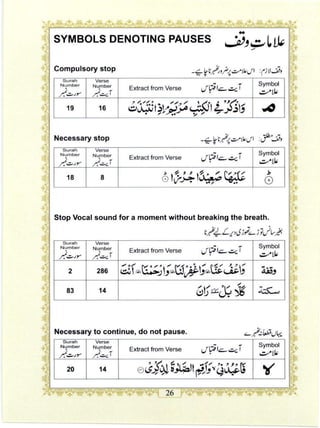 SYMBOLS DENOTING PAUSES علاماتِ وقف
Compulsory stop وقفِ لازم اس علامت پر ضرور ٹھہرنا چاہیے۔
Surah Number سورت نمبر Verse Number آیت نمبر Extract from Verse آیت سے اقتباس Symbol علامت
19 16 وَاذْكُرْ فِى الْكِتٰبِ مَرْيَمَ ۘ اِذِ انْتَبَذَتْ ۘ
Necessary stop وقفِ مطلق اس علامت پر ٹھہرنا چاہیے۔
Surah Number سورت نمبر Verse Number آیت نمبر Extract from Verse آیت سے Symbol علامت
18 8 عَلَيْهَا صَعِيْدًا جُرُزًا ؕ
Stop Vocal sound for a moment without breaking the breath.
بغیر سانس توڑے تھوڑی دیر کے لیے ٹھہرنا
Surah Number سورت نمبر Verse Number آیت نمبر Extract from Verse آیت سے Symbol علامت
2 286 وَاعْفُ عَنَّا وقفة وَاغْفِرْ لَنَا وقفة وَارْحَمْنَا وقفة اَنْتَ وقفة
83 14 كَلَّا بَلْ سكتة رَانَ سكتة
Necessary to continue, do not pause. یہاں قطعاً نہ ٹھہریے
Surah Number سورت نمبر Verse Number آیت نمبر Extract from Verse آیت سے Symbol علامت
20 14 فَاعْبُدْنِيْ ۙ وَاَقِمِ الصَّلٰوةَ لِذِكْرِيْ لا
26